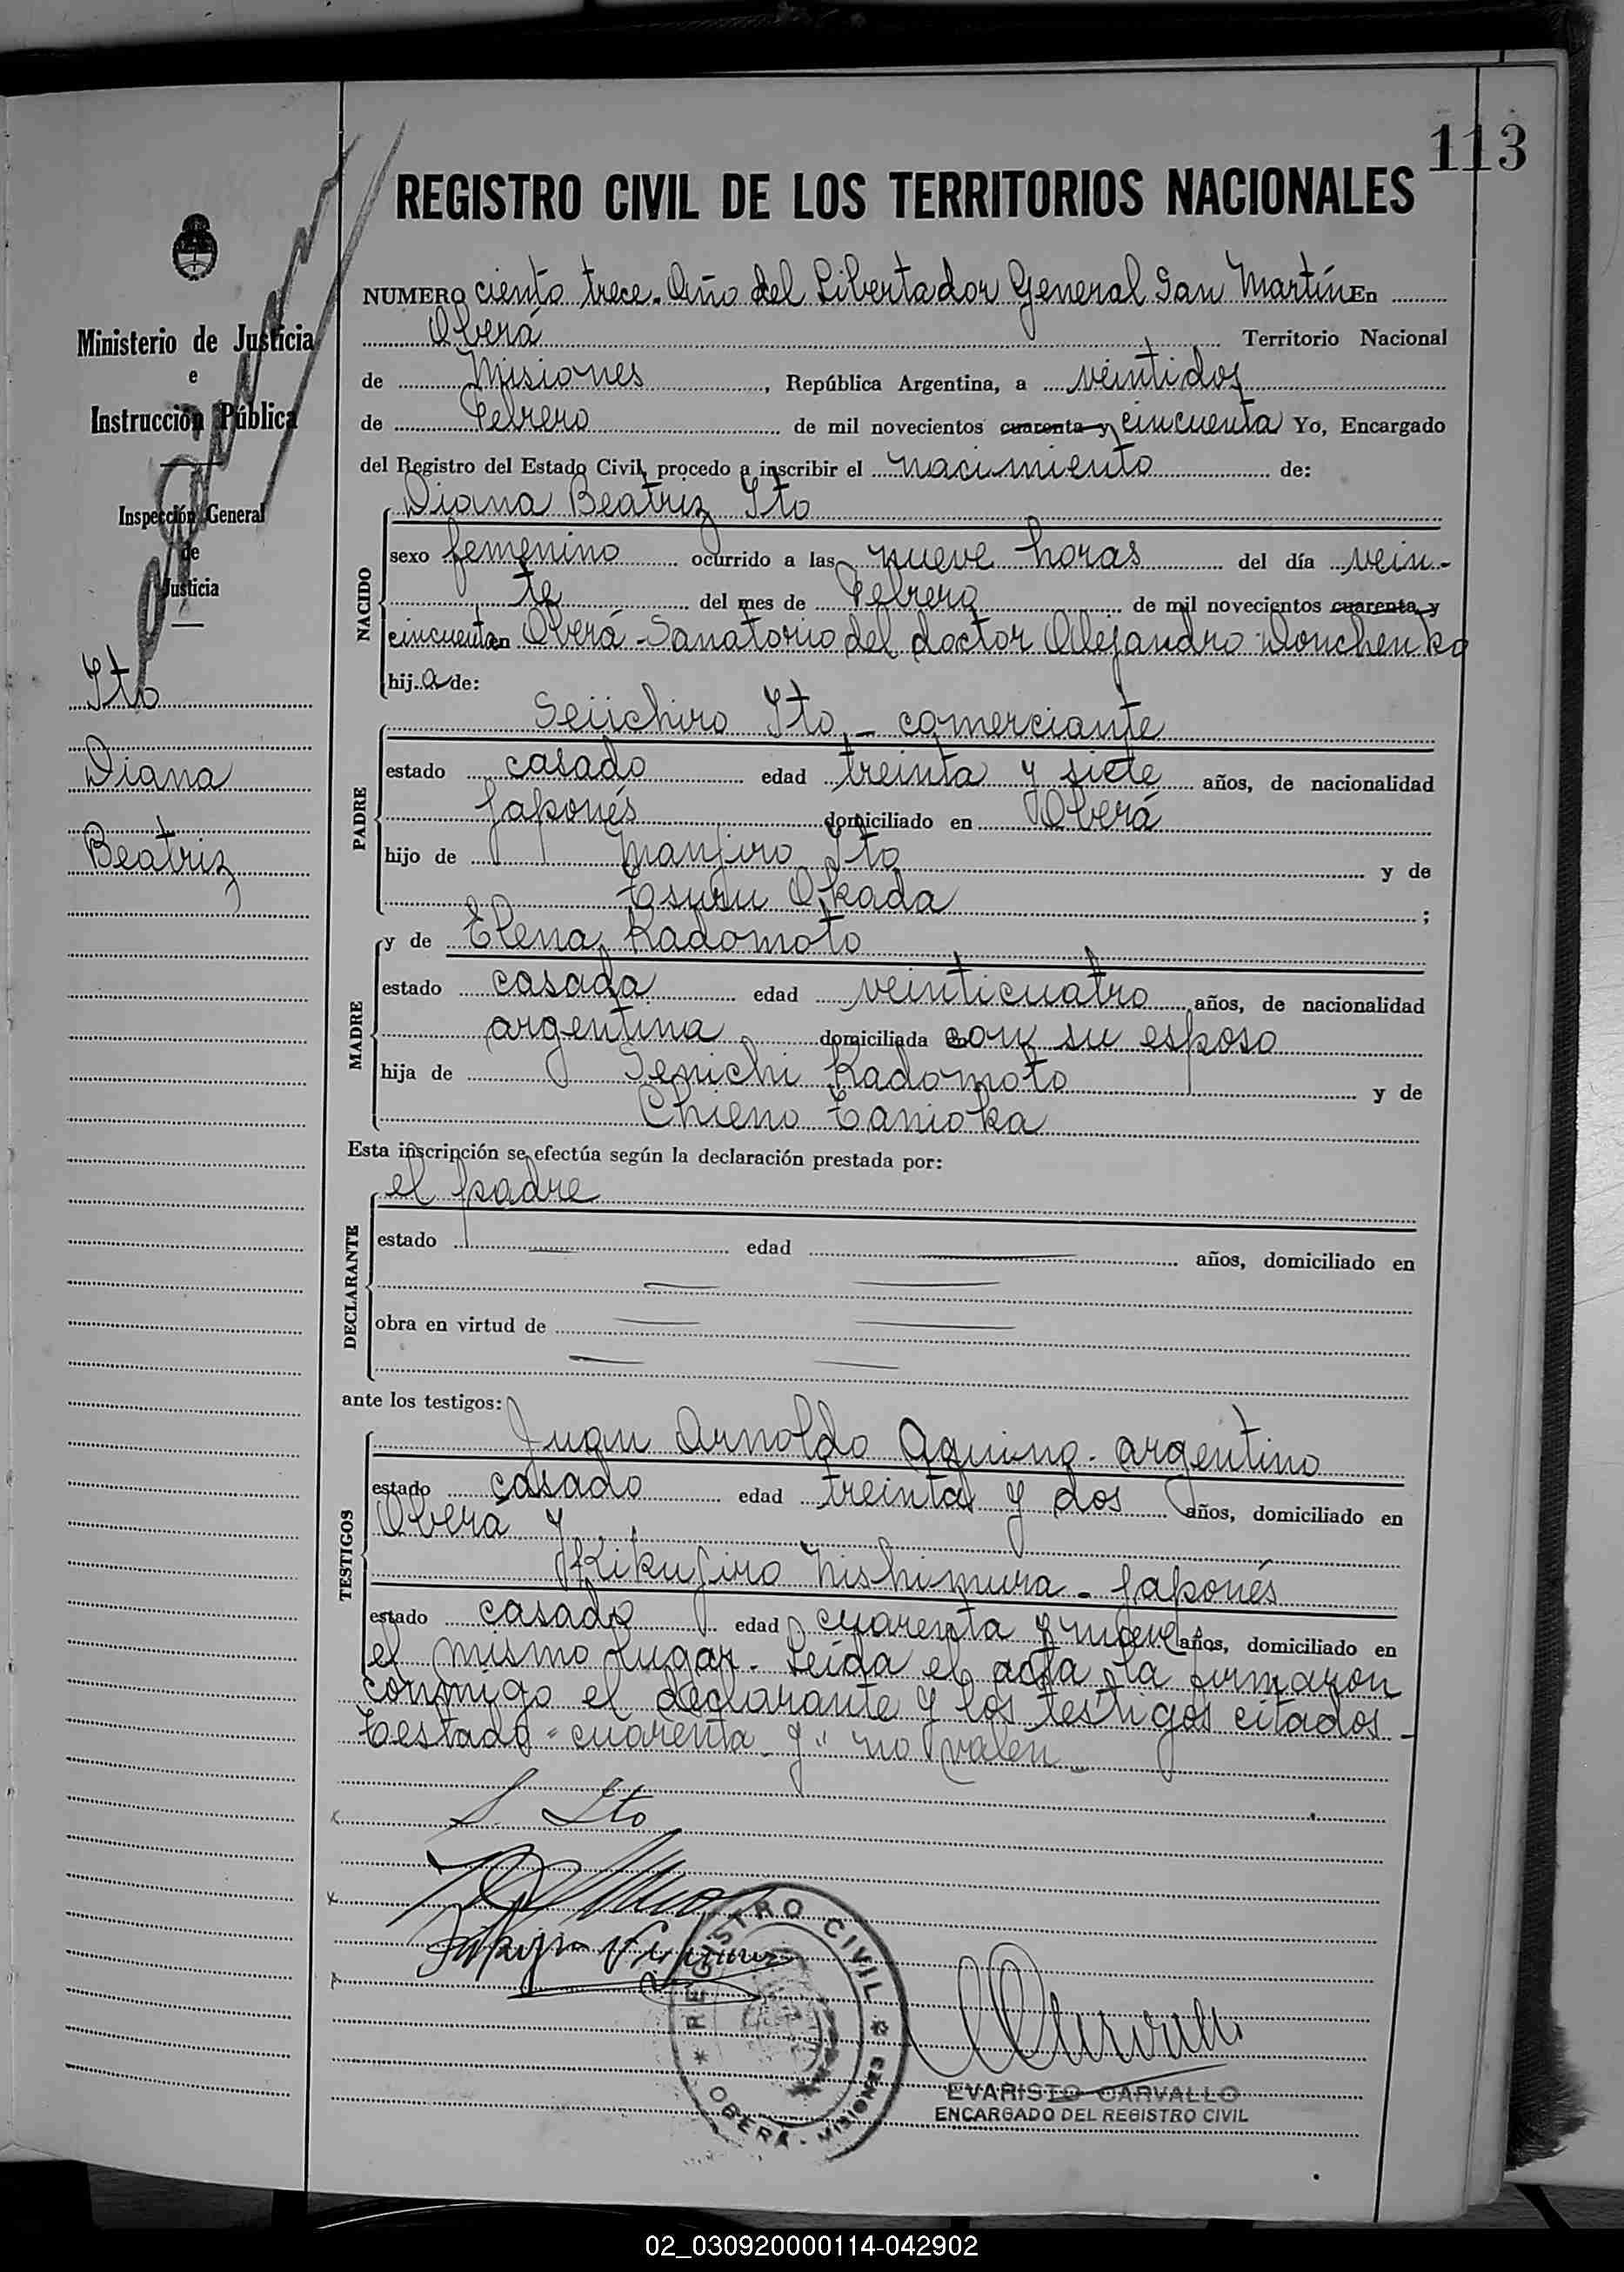 113
REGISTRO CIVIL DE LOS TERRITORIOS NACIONALES
Ministerio de Justicia
e
Instrucción Pública
Inspección General
de
Justicia
Ito
Diana
Beatriz
NUMERO ciento trece. Año del Libertador General San Martín En
Oberá Territorio Nacional
de Misiones, República Argentina, a veintidos
de Febrero de mil novecientos cuarenta y cincuenta Yo, Encargado
del Registro del Estado Civil, procedo a inscribir el nacimiento de:
NACIDO
Diana Beatriz Ito
sexo femenino ocurrido a las nueve horas del día vein-
te del mes de Febrero de mil novecientos cuarenta y
cincuenta en Oberá - Sanatorio del doctor Alejandro Donchenko
hij a de:
PADRE
Seiichiro Ito - comerciante
estado casado edad treinta y siete años, de nacionalidad
Japonés domiciliado en Oberá
hijo de Manjiro Ito y de
Tsuru Okada ;
MADRE
y de Elena Kadomoto
estado casada edad veinticuatro años, de nacionalidad
argentina domiciliada con su esposo
hija de Senichi Kadomoto y de
Chieno Tanioka
Esta inscripción se efectúa según la declaración prestada por:
DECLARANTE
el padre
estado edad años, domiciliado en
obra en virtud de
ante los testigos:
TESTIGOS
Juan Arnoldo Aquino - argentino
estado casado edad treinta y dos años, domiciliado en
Oberá y
Kikujiro Nishimura - Japonés
estado casado edad cuarenta y nueve años, domiciliado en
el mismo lugar. Leída el acta, la firmaron
conmigo el declarante y los testigos citados -
Testado "cuarenta y" no valen -
S. Ito
REGISTRO CIVIL
OBERÁ - MISIONES
EVARISTO CARVALLO
ENCARGADO DEL REGISTRO CIVIL
02_030920000114-042902